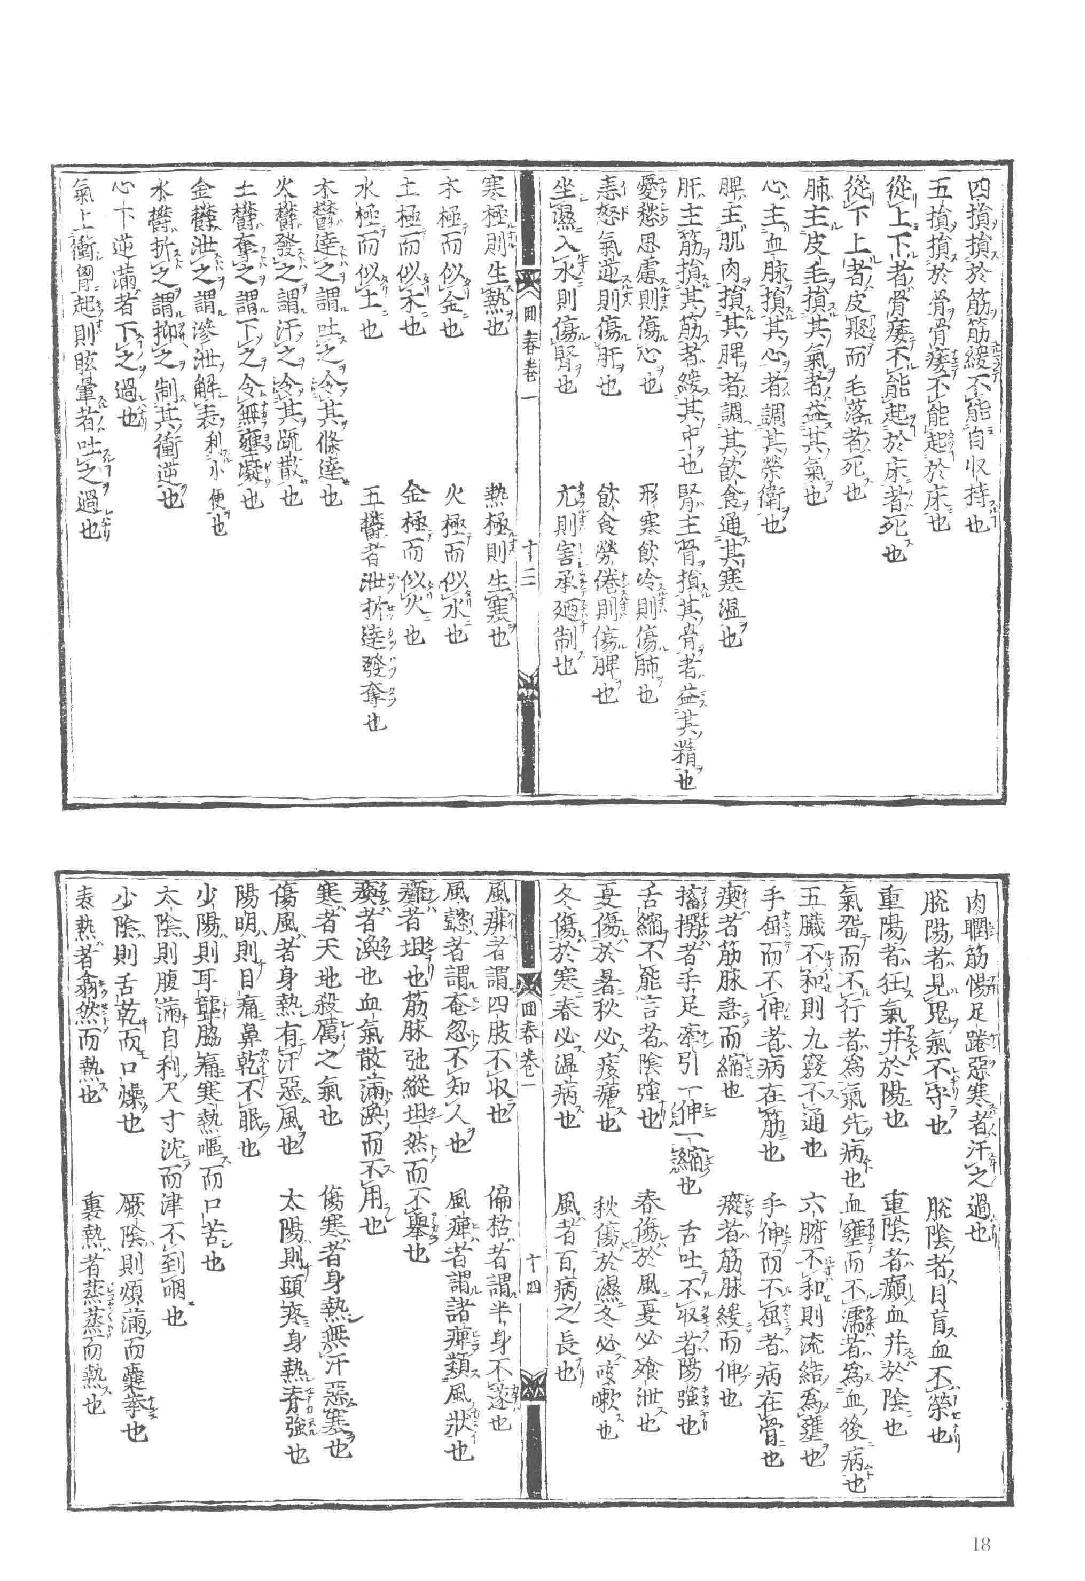 四損損於筋筋緩不能自收持也
五損損於骨骨痿不能起於床也
從上下者骨痿不能起於床者死也
從下上者皮聚而毛落者死也
肺主皮毛損其氣者益其氣也
心主血脉損其心者調其榮衛也
脾主肌肉損其脾者調其飲食通其寒溫也
肝主筋損其筋者緩其中也 腎主骨損其骨者益其精也
憂愁思慮則傷心也 形寒飲冷則傷肺也
恚怒氣逆則傷肝也 飲食勞倦則傷脾也
坐濕入水則傷腎也 亢則害承廼制也
回春卷一 十三
寒極則生熱也 熱極則生寒也
木極而似金也 火極而似水也
土極而似木也 金極而似火也
水極而似土也 五鬱者泄折達發奪也
木鬱達之謂吐之令其條達也
火鬱發之謂汗之令其疏散也
土鬱奪之謂下之令無壅凝也
金鬱泄之謂滲泄解表利小便也
水鬱折之謂抑之制其衝逆也
心下逆滿者下之過也
氣上衝胷起則眩暈者吐之過也
肉瞤筋惕足踡惡寒者汗之過也
脫陽者見鬼氣不守也 脫陰者目盲血不榮也
重陽者狂氣并於陽也 重陰者癲血并於陰也
氣留而不行者為氣先病也 血壅而不濡者為血後病也
五臟不和則九竅不通也 六腑不和則流結為壅也
手屈而不伸者病在筋也 手伸而不屈者病在骨也
瘈者筋脉急而縮也 瘲者筋脉緩而伸也
搐搦者手足牽引一伸一縮也 舌吐不収者陽強也
舌縮不能言者陰強也 春傷於風夏必飧泄也
夏傷於暑秋必痎瘧也 秋傷於濕冬必咳嗽也
冬傷於寒春必溫病也 風者百病之長也
回春卷一 十四
風痱者謂四肢不収也 偏枯者謂半身不遂也
風懿者謂奄忽不知人也 風痺者謂諸痺類風狀也
癱者坦也筋脉弛縱坦然而不舉也
瘓者渙也血氣散滿渙而不用也
寒者天地殺厲之氣也 傷寒者身熱無汗惡寒也
傷風者身熱有汗惡風也 太陽則頭疼身熱脊強也
陽明則目痛鼻乾不眠也
少陽則耳聾脇痛寒熱嘔而口苦也
太陰則腹滿自利尺寸沈而津不到咽也
少陰則舌乾而口燥也 厥陰則煩滿而囊拳也
表熱者翕然而熱也 裏熱者蒸蒸而熱也
18